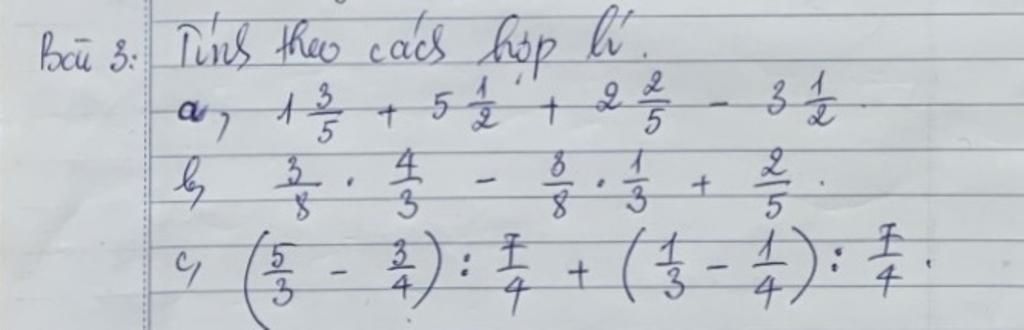 Bài 3: Tính theo cách hợp lí.
a, 1 3/5 + 5 1/2 + 2 2/5 - 3 1/2
b, 3/8 . 4/3 - 3/8 . 1/3 + 2/5 .
c, (5/3 - 3/4) : 7/4 + (1/3 - 1/4) : 7/4 .